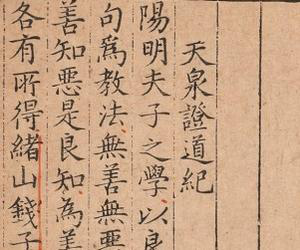 天泉證道紀
陽明夫子之學以良
句為教法無善無惡
善知惡是良知為善
各有所得緒山錢子